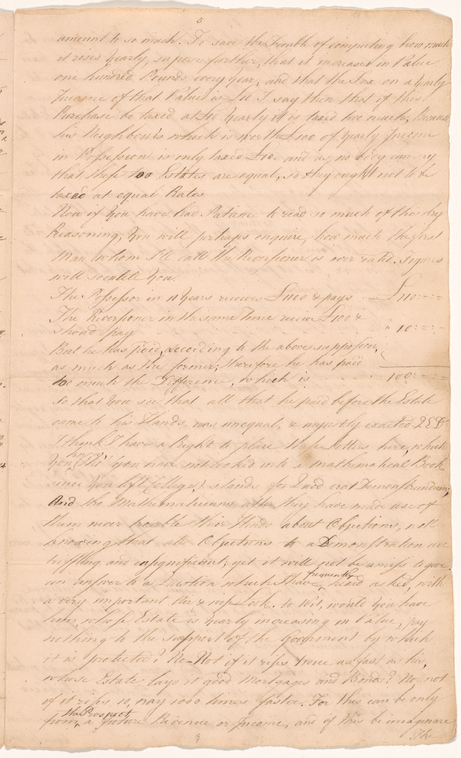 5
amount to so much. To save the Trouble of computing how much
it rises Yearly, suppose further, that it increases in Value
one hundred Pounds every year, and that the Tax on a Yearly
Income of that Value is I say then that if this
Purchase be taxed at Yearly it is taxed too much, because
his Neighbour's which is worth £100 of Yearly Income
in Possession is only taxed and as no body can say
that these two Estates are equal, so they ought not to be
taxed at equal Rates
Now if You have had Patience to read so much of this dry
Reasoning, You will perhaps enquire, how much the first
Man whom I'll call the Reversioner is over rated, Figures
will satisfy You.
The Possessor in Years receives £100 & pays
The Reversioner in the same time receives £100 &
should pay 10
But he has paid, according to the above supposition,
as much as the former; therefore he has paid
too much the Difference, which is 100
So that You see that all that he paid before the Estate
came to his Hands was unequal, & unjustly exacted Q E D
I think I have a Right to place these Letters here, what
You (tho' You have not looked into a Mathematical Book
since You left College) stands for Quod erat Demonstrandum,
And the Mathematicians after they have made use of
them never trouble their Heads about Objections, well
knowing that all Objections to a Demonstration are
trifling and insignificant, yet it will not be amiss to give
an Answer to a Question which I have frequently heard asked, with
a very important Air & wise Look, to Wit, would You have
him, whose Estate is Yearly increasing in Value, pay
nothing to the Support of the Government by which
it is protected? No. Not if it rises twice as fast as his,
whose Estate lays in good Mortgages and Bonds? No, not
if it rises 10, nay 1000 times faster. For this can be only
from the Prospect a future Revenue or Income, and if this be imaginary
The